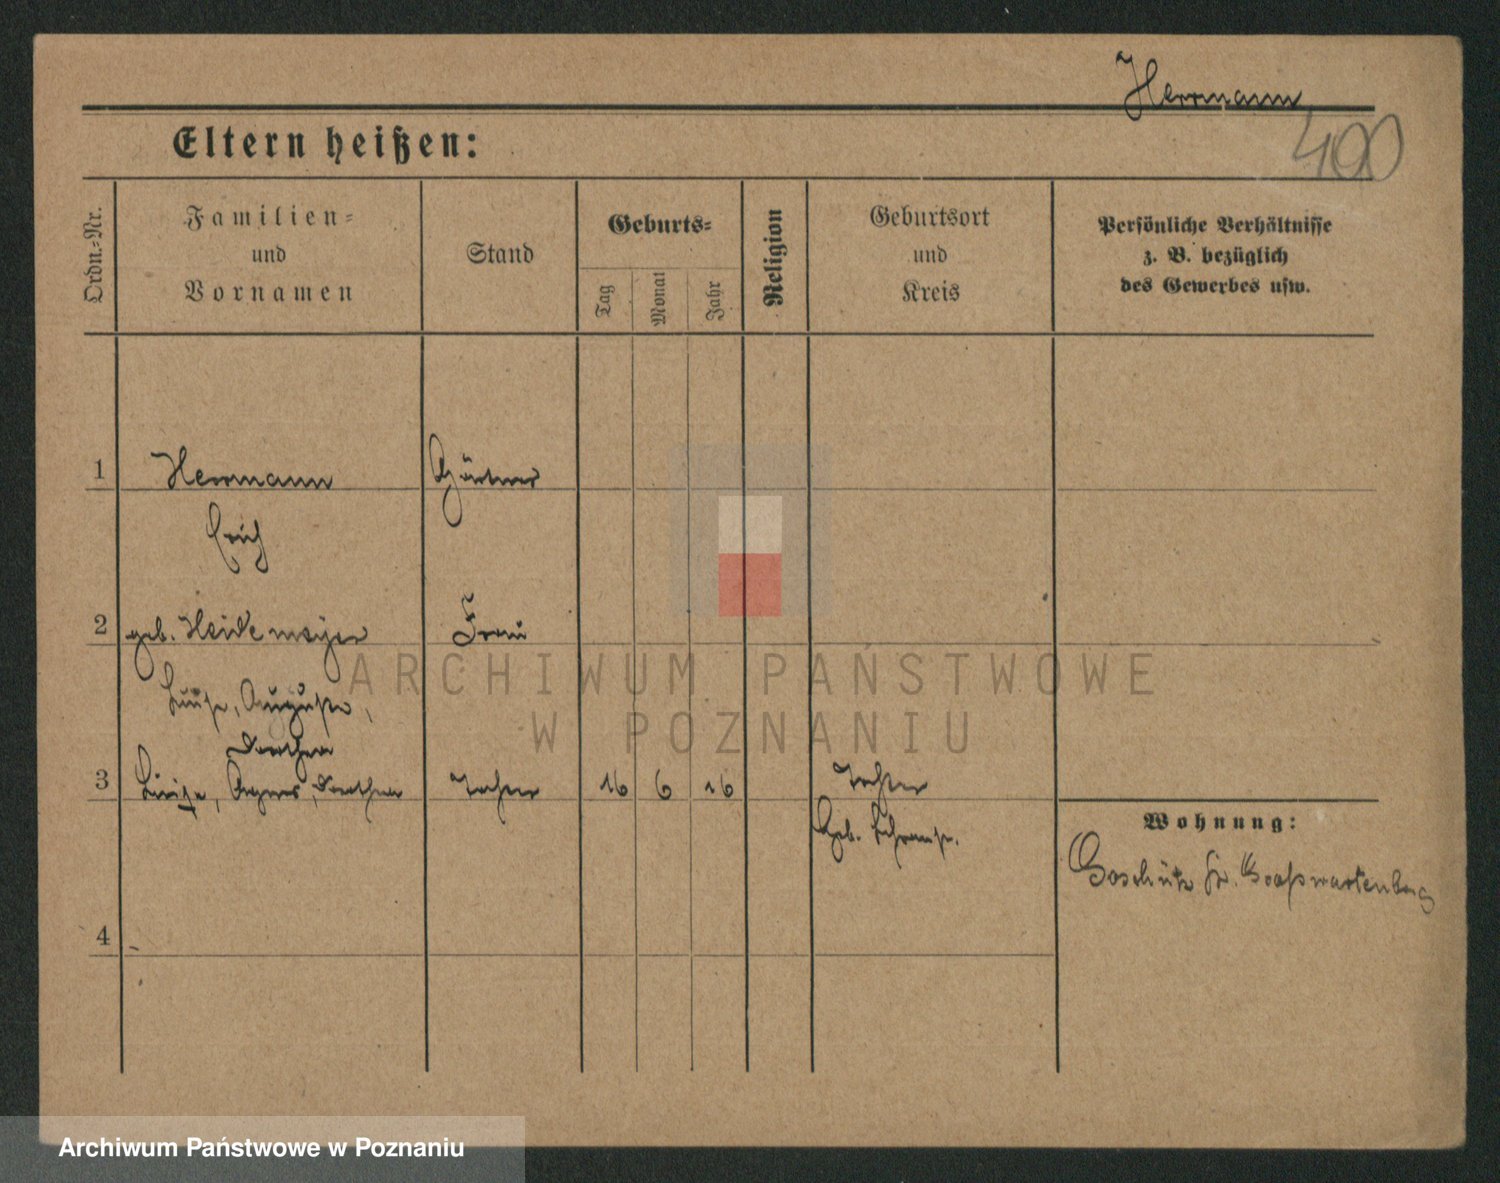 Herrmann
400
Eltern heißen:
Ordn.=Nr.
Familien=
und
Vornamen
Stand
Geburts=
Tag
Monat
Jahr
Religion
Geburtsort
und
Kreis
Persönliche Verhältnisse
z. B. bezüglich
des Gewerbes usw.
1 Herrmann Gärtner
Erich
2 geb. Heidemeyer Frau
Luise, Auguste,
Dorthea
3 Luise, Agnes, Dorthea Tochter 16 6 16
Geb.
Wohnung:
Goschütz Kr. Großwartenberg
4
ARCHIWUM PAŃSTWOWE
W POZNANIU
Archiwum Państwowe w Poznaniu